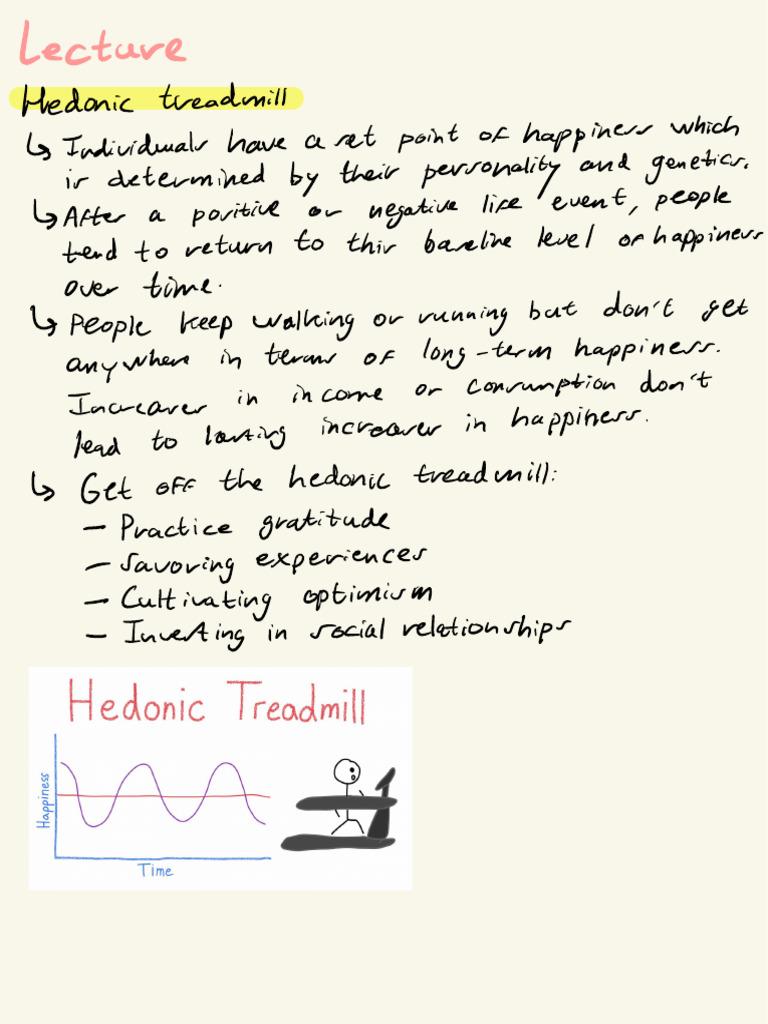 Lecture
Hedonic treadmill
↳ Individuals have a set point of happiness which
is determined by their personality and genetics.
↳ After a positive or negative life event, people
tend to return to this baseline level of happiness
over time.
↳ People keep walking or running but don't get
anywhere in terms of long-term happiness.
Increases in income or consumption don't
lead to lasting increases in happiness.
↳ Get off the hedonic treadmill:
- Practice gratitude
- Savoring experiences
- Cultivating optimism
- Investing in social relationships
Hedonic Treadmill
Happiness
Time